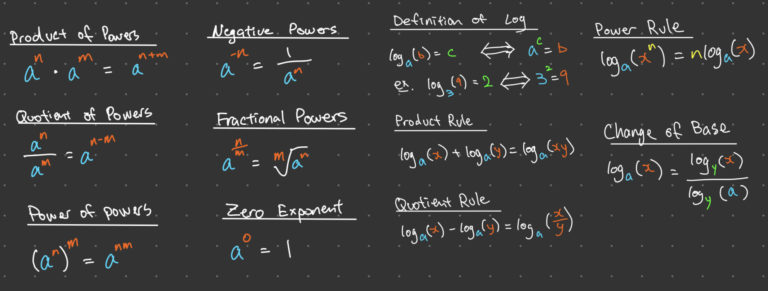 Product of Powers
aⁿ · aᵐ = aⁿ⁺ᵐ
Quotient of Powers
aⁿ/aᵐ = aⁿ⁻ᵐ
Power of powers
(aⁿ)ᵐ = aⁿᵐ
Negative Powers
a⁻ⁿ = 1/aⁿ
Fractional Powers
a^(n/m) = ᵐ√aⁿ
Zero Exponent
a⁰ = 1
Definition of Log
logₐ(b) = c ⟺ aᶜ = b
ex. log₃(9) = 2 ⟺ 3² = 9
Product Rule
logₐ(x) + logₐ(y) = logₐ(xy)
Quotient Rule
logₐ(x) - logₐ(y) = logₐ(x/y)
Power Rule
logₐ(xⁿ) = n logₐ(x)
Change of Base
logₐ(x) = log_y(x)/log_y(a)